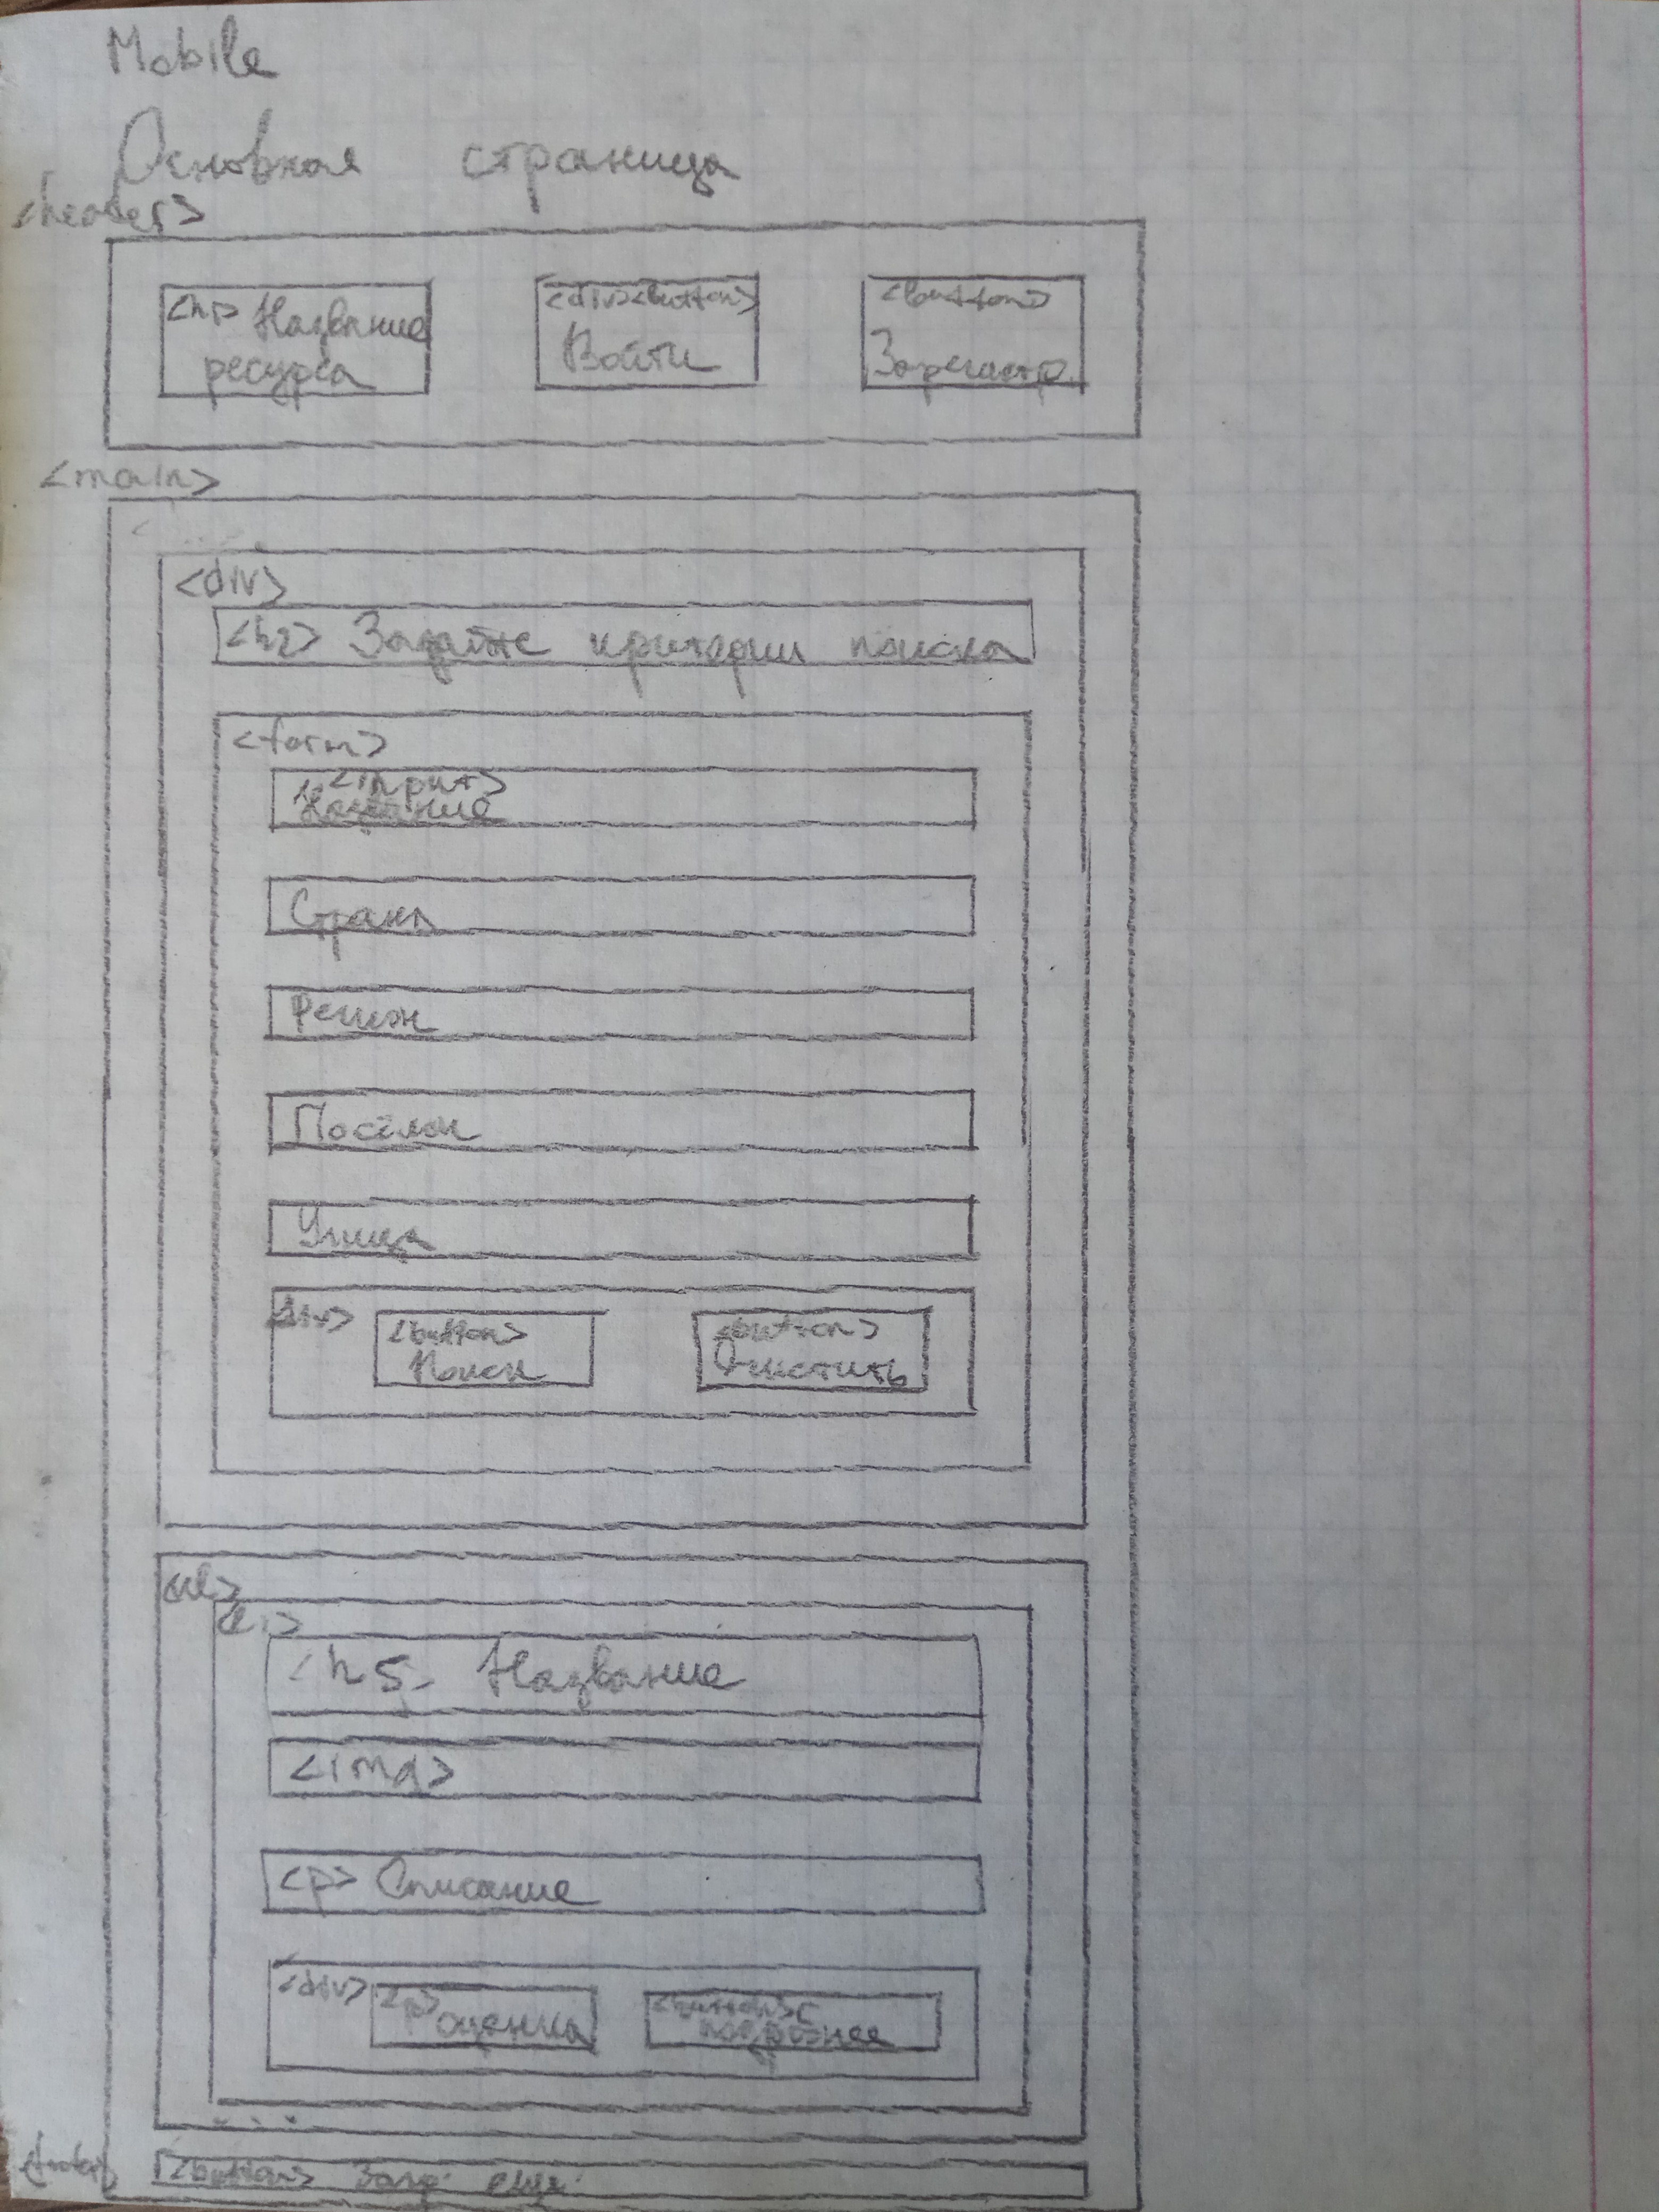 Mobile
Основная страница
<header>
<h1> Название
ресурса
<div><button>
Войти
<button>
Зарегистр.
<main>
<div>
<h2> Задайте критерии поиска
<form>
<input>
Название
Страна
Регион
Посёлок
Улица
<div>
<button>
Поиск
<button>
Очистить
<ul>
<li>
<h5> Название
<img>
<p> Описание
<div>
<p>
оценка
<button>
подробнее
...
<footer>
<button> Загр. ещё.